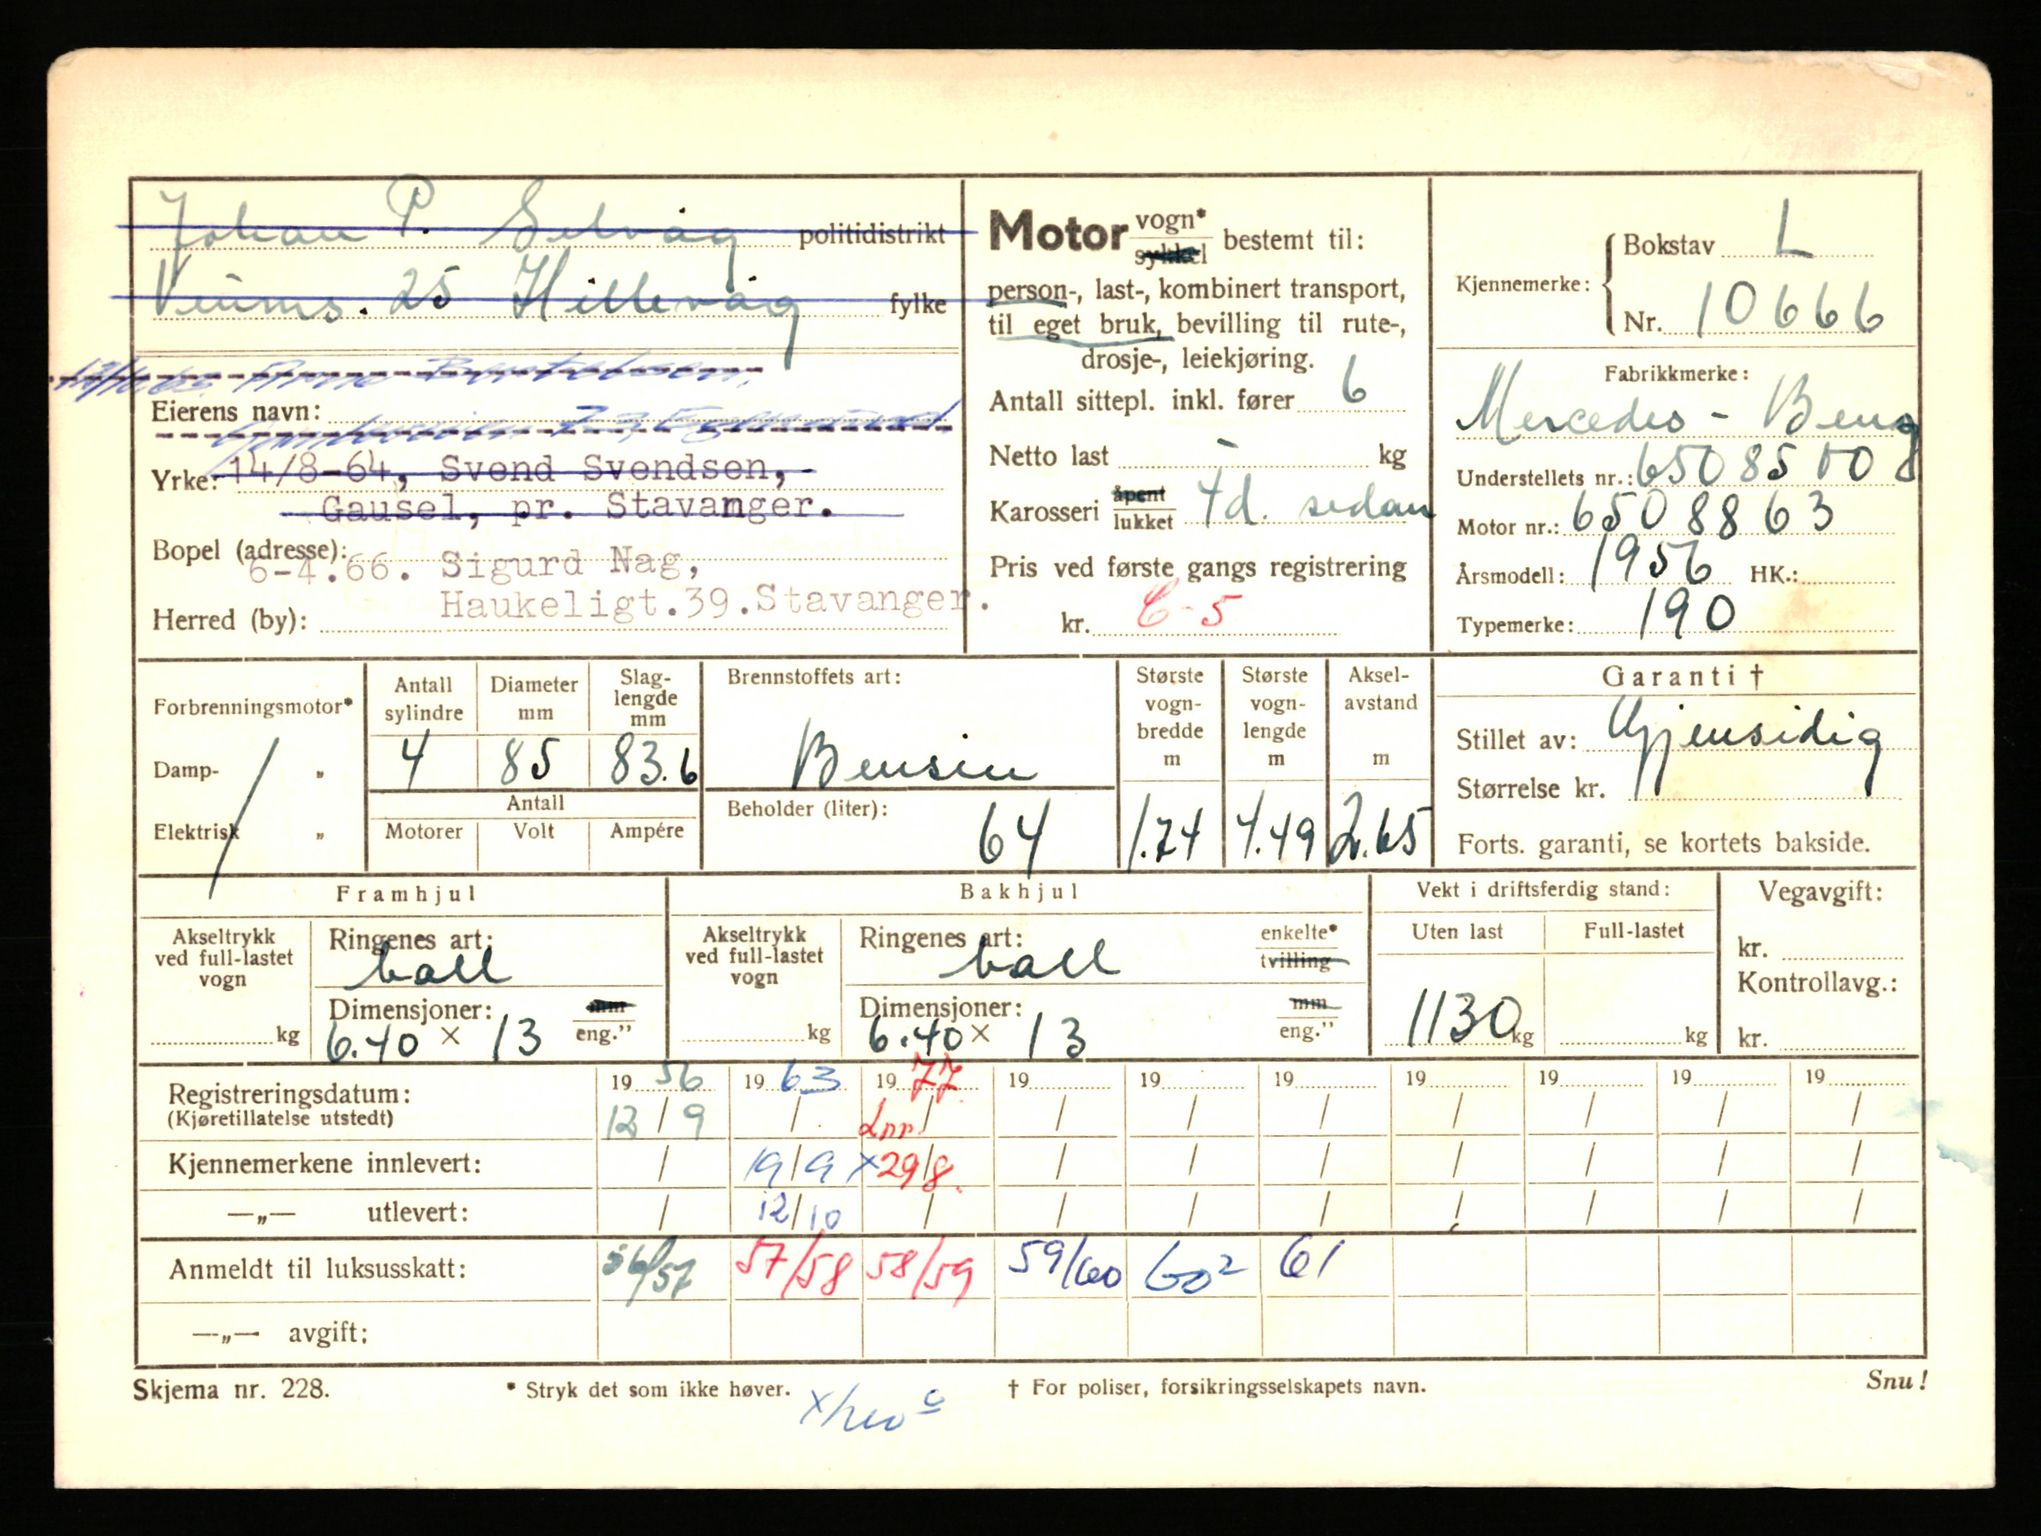 Johan P. Selvåg politidistrikt
Veums. 25 Hillevåg fylke
Arne
Eierens navn:
Egersund
Yrke: 14/8-64, Svend Svendsen,
Gausel, pr. Stavanger.
Bopel (adresse):
6-4.66. Sigurd Nag,
Haukeligt.39.Stavanger.
Herred (by):
Motor vogn* sykkel bestemt til:
person-, last-, kombinert transport,
til eget bruk, bevilling til rute-,
drosje-, leiekjøring.
Antall sittepl. inkl. fører 6
Netto last - kg
Karosseri åpent lukket 4d. sedan
Pris ved første gangs registrering
kr. C-5
Kjennemerke: Bokstav L
Nr. 10666
Fabrikkmerke:
Mercedes - Benz
Understellets nr.: 6508500
Motor nr.: 6508863
Årsmodell: 1956 HK.:
Typemerke: 190
Forbrenningsmotor*
Damp- „
Elektrisk „
Antall sylindre
Diameter mm
Slag-lengde mm
4 85 83.6
Antall
Motorer Volt Ampére
Brennstoffets art:
Bensin
Beholder (liter):
64
Største vogn-bredde m
1.74
Største vogn-lengde m
4.49
Aksel-avstand m
2.65
Garanti †
Stillet av: Gjensidig
Størrelse kr.
Forts. garanti, se kortets bakside.
Framhjul
Akseltrykk ved full-lastet vogn
kg
Ringenes art:
ball
Dimensjoner: mm
6.40 x 13 eng.”
Bakhjul
Akseltrykk ved full-lastet vogn
kg
Ringenes art: enkelte*
ball tvilling
Dimensjoner: mm
6.40 x 13 eng.”
Vekt i driftsferdig stand:
Uten last Full-lastet
1130 kg kg
Vegavgift:
kr.
Kontrollavg.:
kr.
Registreringsdatum: 19 56 19 63 19 77 19 19 19 19 19 19 19
(Kjøretillatelse utstedt) 12/9 / Lnr. / / / / / / / /
Kjennemerkene innlevert: / 19/9 x 29/8 / / / / / / /
—„— utlevert: / 12/10 / / / / / / / /
Anmeldt til luksusskatt: 56/57 57/58 58/59 59/60 60² 61
—„— avgift:
Skjema nr. 228.
* Stryk det som ikke høver.
† For poliser, forsikringsselskapets navn.
Snu!